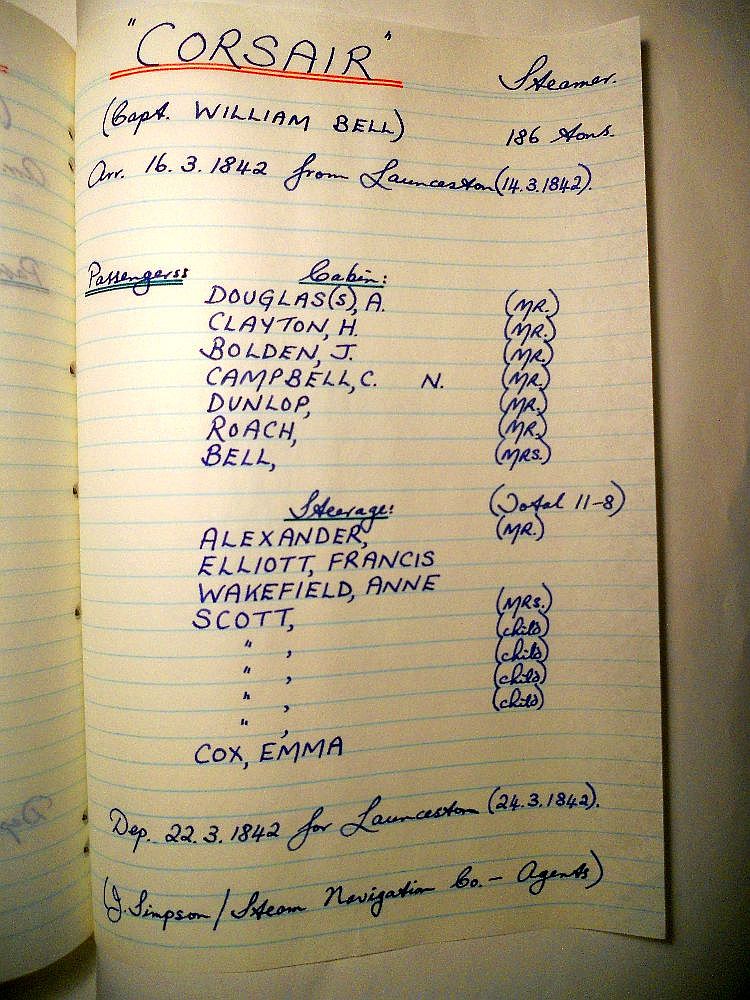 "CORSAIR"
Steamer.
(Capt. WILLIAM BELL)
186 tons.
Arr. 16.3.1842 from Launceston (14.3.1842).
Passengerss Cabin:
DOUGLAS(S), A. (MR.)
CLAYTON, H. (MR.)
BOLDEN, J. (MR.)
CAMPBELL, C. N. (MR.)
DUNLOP, (MR.)
ROACH, (MR.)
BELL, (MRS.)
Steerage: (Total 11-8)
ALEXANDER, (MR.)
ELLIOTT, FRANCIS
WAKEFIELD, ANNE
SCOTT, (MRS.)
" , (child)
" , (child)
" , (child)
" , (child)
COX, EMMA
Dep. 22.3.1842 for Launceston (24.3.1842).
(J. Simpson / Steam Navigation Co. - Agents)